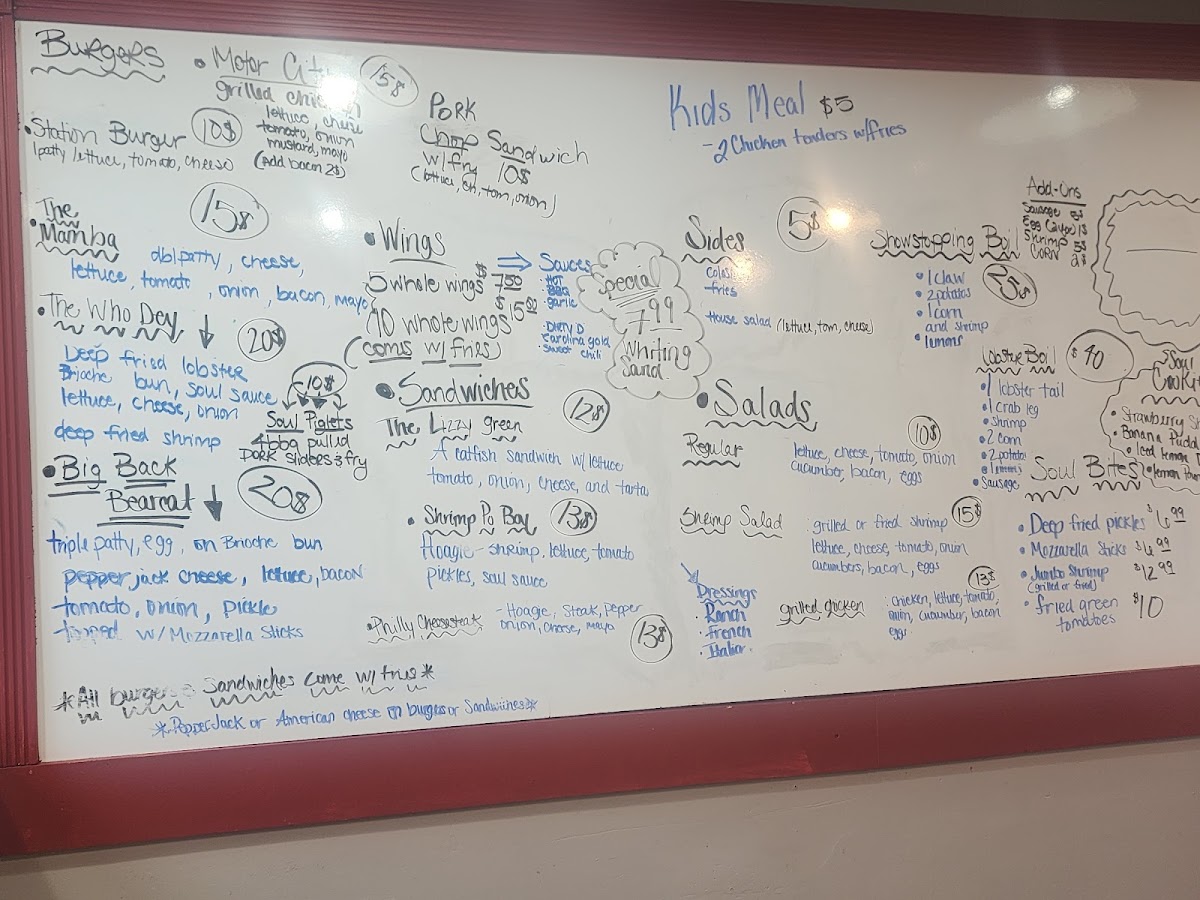 Burgers
• Motor City
15$
grilled chicken
lettuce, cheese
tomato, onion
mustard, mayo
(Add bacon 2$)
• Station Burger 10$
1 patty lettuce, tomato, cheese
15$
• The
Mamba
dbl patty, cheese,
lettuce, tomato, onion, bacon, mayo
• The Who Dey
20$
Deep fried lobster
Brioche bun, soul sauce
lettuce, cheese, onion
deep fried shrimp
10$
Soul Piglets
4 bbq pulled
pork sliders & fry
• Big Back
Bearcat
20$
triple patty, egg, on Brioche bun
pepper jack cheese, lettuce, bacon
tomato, onion, pickle
topped w/ Mozzarella Sticks
*All burgers Sandwiches come w/ fries*
*PepperJack or American cheese on burgers or Sandwiches*
Pork
Chop Sandwich
w/fry 10$
(lettuce, ch, tom, onion)
• Wings
5 whole wings $7.50
10 whole wings $15.00
(comes w/ fries)
Sauces
· HOT
· BBQ
· garlic
· Dirty D
Carolina gold
sweet chili
Special
7.99
Whiting
Sand.
• Sandwiches
12$
The Lizzy green
A catfish sandwich w/ lettuce
tomato, onion, cheese, and tarta
• Shrimp Po Boy 13$
Hoagie - shrimp, lettuce, tomato
pickles, soul sauce
• Philly Cheesesteak
- Hoagie, Steak, pepper
onion, cheese, mayo
13$
Kids Meal $5
- 2 Chicken tenders w/fries
Sides
5$
fries
House salad (lettuce, tom, cheese)
• Salads
Regular
10$
lettuce, cheese, tomato, onion
cucumber, bacon, eggs
Shrimp Salad
15$
grilled or fried shrimp
lettuce, cheese, tomato, onion
cucumbers, bacon, eggs
grilled chicken
13$
: chicken, lettuce, tomato,
onion, cucumber, bacon
eggs
Dressings
· Ranch
· French
· Italian
Showstopping Boil
25$
• 1 claw
• 2 potatos
• 1 corn
and shrimp
• lemons
Add-Ons
Sausage
Shrimp 5$
Corn 2$
Lobster Boil
$40
• 1 lobster tail
• 1 crab leg
• shrimp
• 2 corn
• 2 potato
• lemons
• Sausage
Soul
• Strawberry
• Banana Pudd
• Iced lemon
• lemon
Soul Bites
• Deep fried pickles $6.99
• Mozzarella Sticks $6.99
• Jumbo Shrimp $12.99
(grilled or fried)
• fried green
tomatoes $10